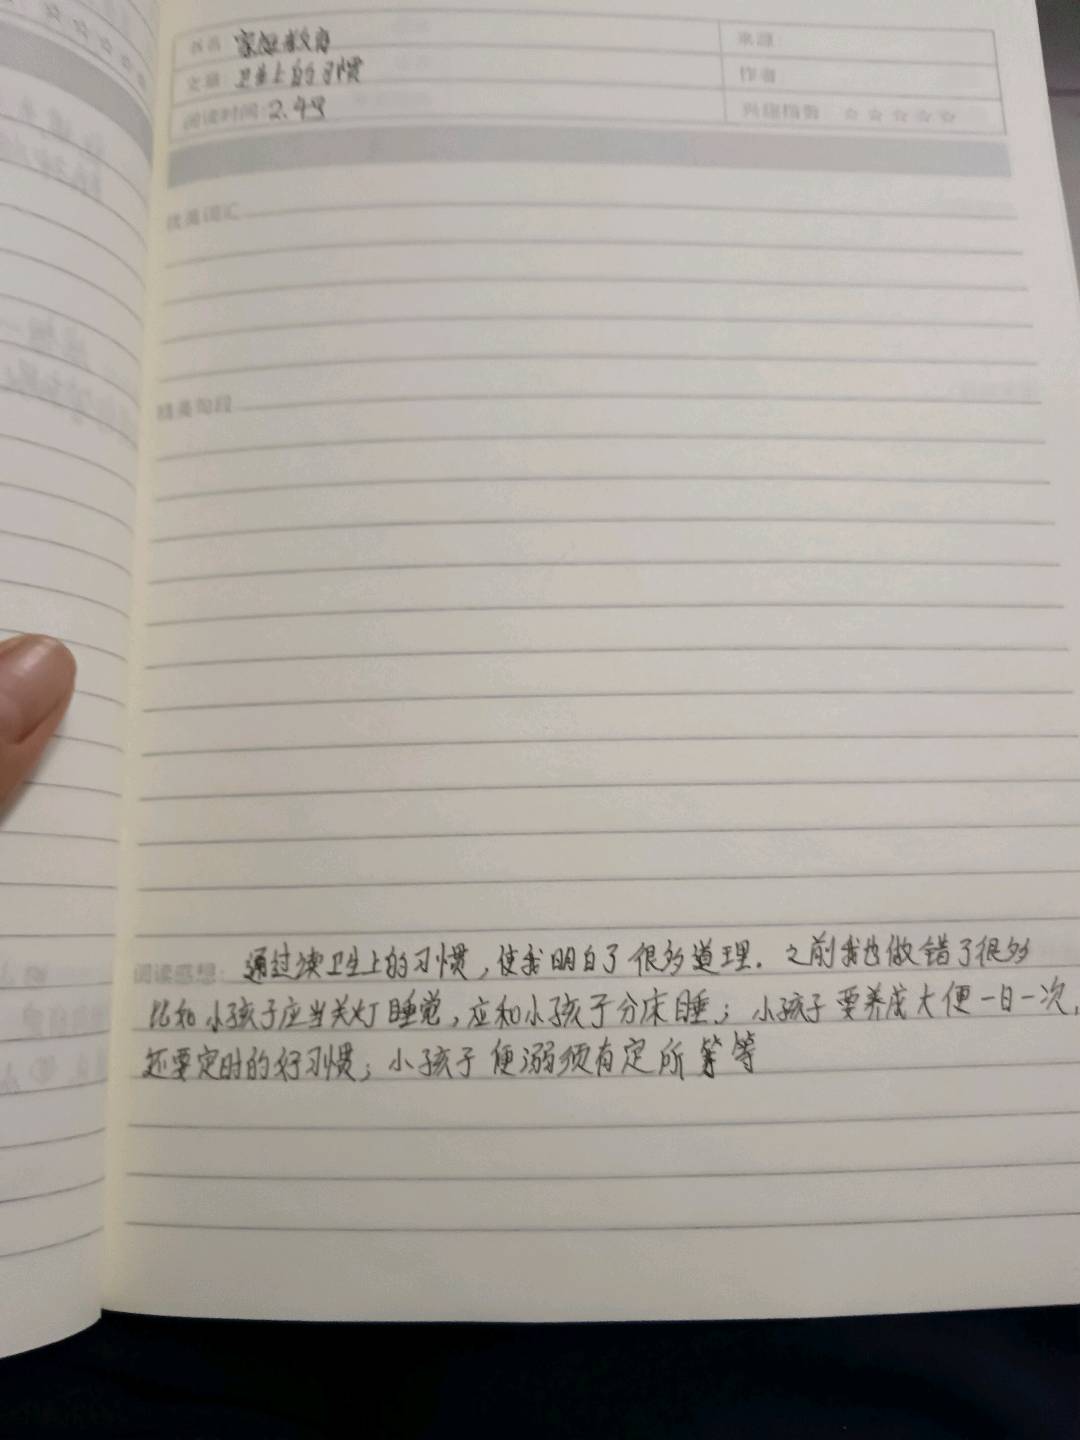 书名 家庭教育 来源
文章 卫生上的习惯 作者
阅读时间:2.49 兴趣指数 ☆☆☆☆☆
优美词汇
精美句段
阅读感想: 通过读卫生上的习惯,使我明白了很多道理.之前我也做错了很多
比如小孩子应当关灯睡觉,应和小孩子分床睡;小孩子要养成大便一日一次,
还要定时的好习惯;小孩子便溺须有定所等等